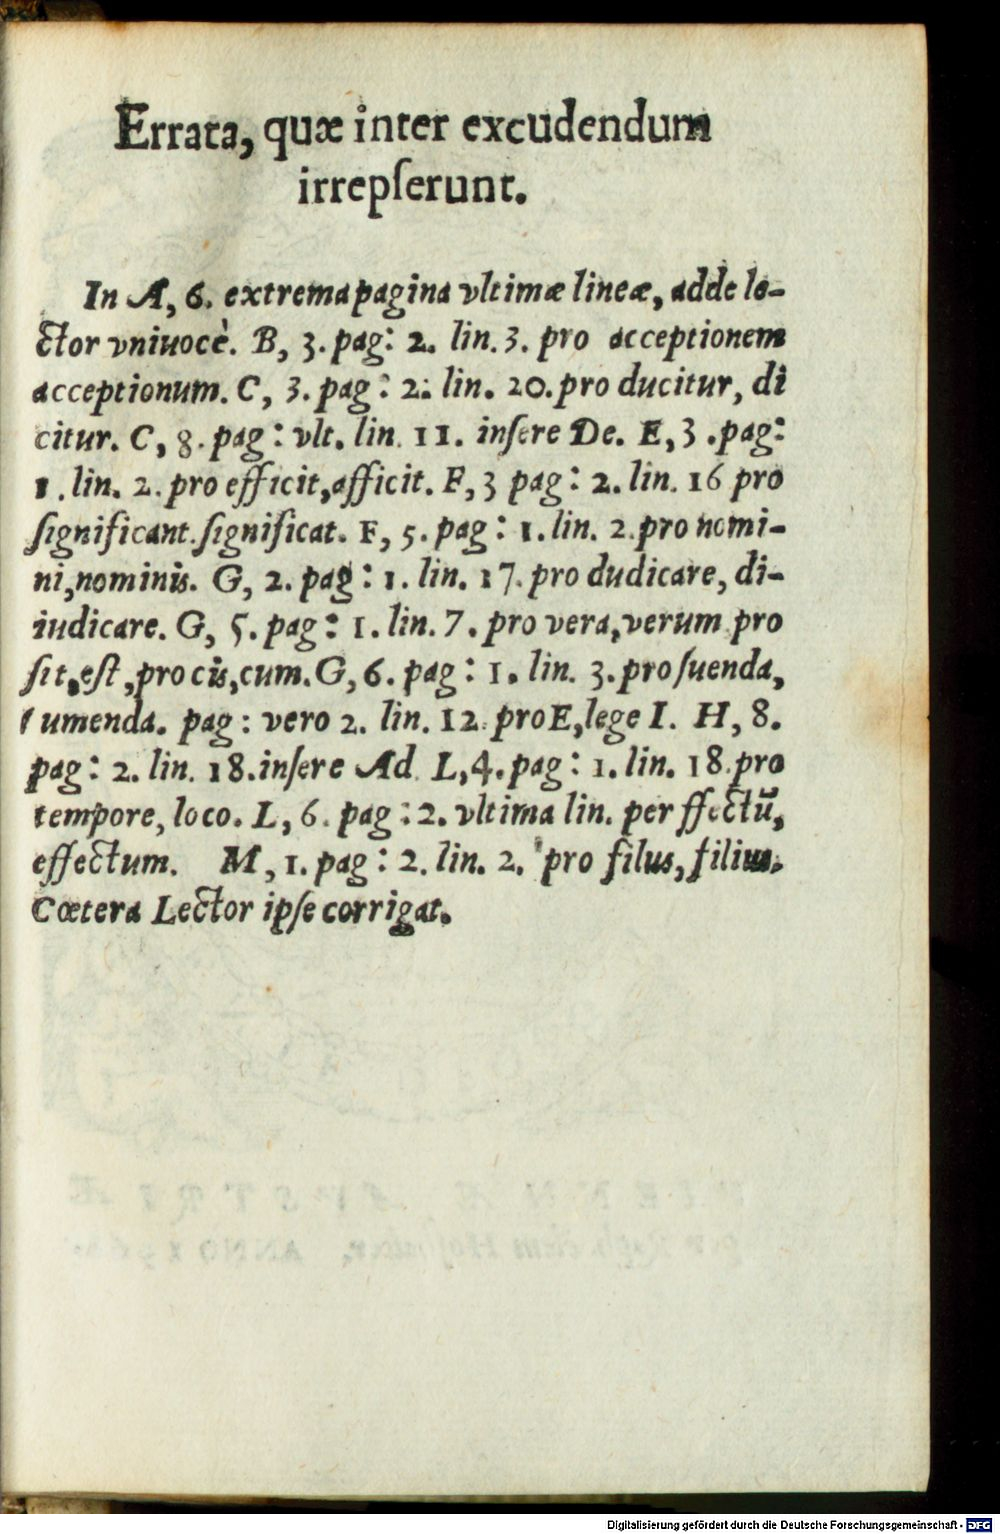 Errata, quæ inter excudendum
irrepſerunt.
In A, 6. extrema pagina vltimæ lineæ, adde le-
ctor vniuocè. B, 3. pag: 2. lin. 3. pro acceptionem
acceptionum. C, 3. pag: 2. lin. 20. pro ducitur, di
citur. C, 8. pag: vlt. lin. 11. inſere De. E, 3. pag:
1. lin. 2. pro efficit, afficit. F, 3 pag: 2. lin. 16 pro
ſignificant. ſignificat. F, 5. pag: 1. lin. 2. pro nomi-
ni, nominis. G, 2. pag: 1. lin. 17. pro dudicare, di-
iudicare. G, 5. pag: 1. lin. 7. pro vera, verum pro
ſit, eſt, pro cis, cum. G, 6. pag: 1. lin. 3. pro ſuenda,
ſumenda. pag: vero 2. lin. 12 pro E, lege I. H, 8.
pag: 2. lin. 18. inſere Ad. L, 4. pag: 1. lin. 18. pro
tempore, loco. L, 6. pag: 2. vltima lin. per ffectū,
effectum. M, 1. pag: 2. lin. 2. pro filus, filius.
Cœtera Lector ipſe corrigat.
Digitalisierung gefördert durch die Deutsche Forschungsgemeinschaft - DFG